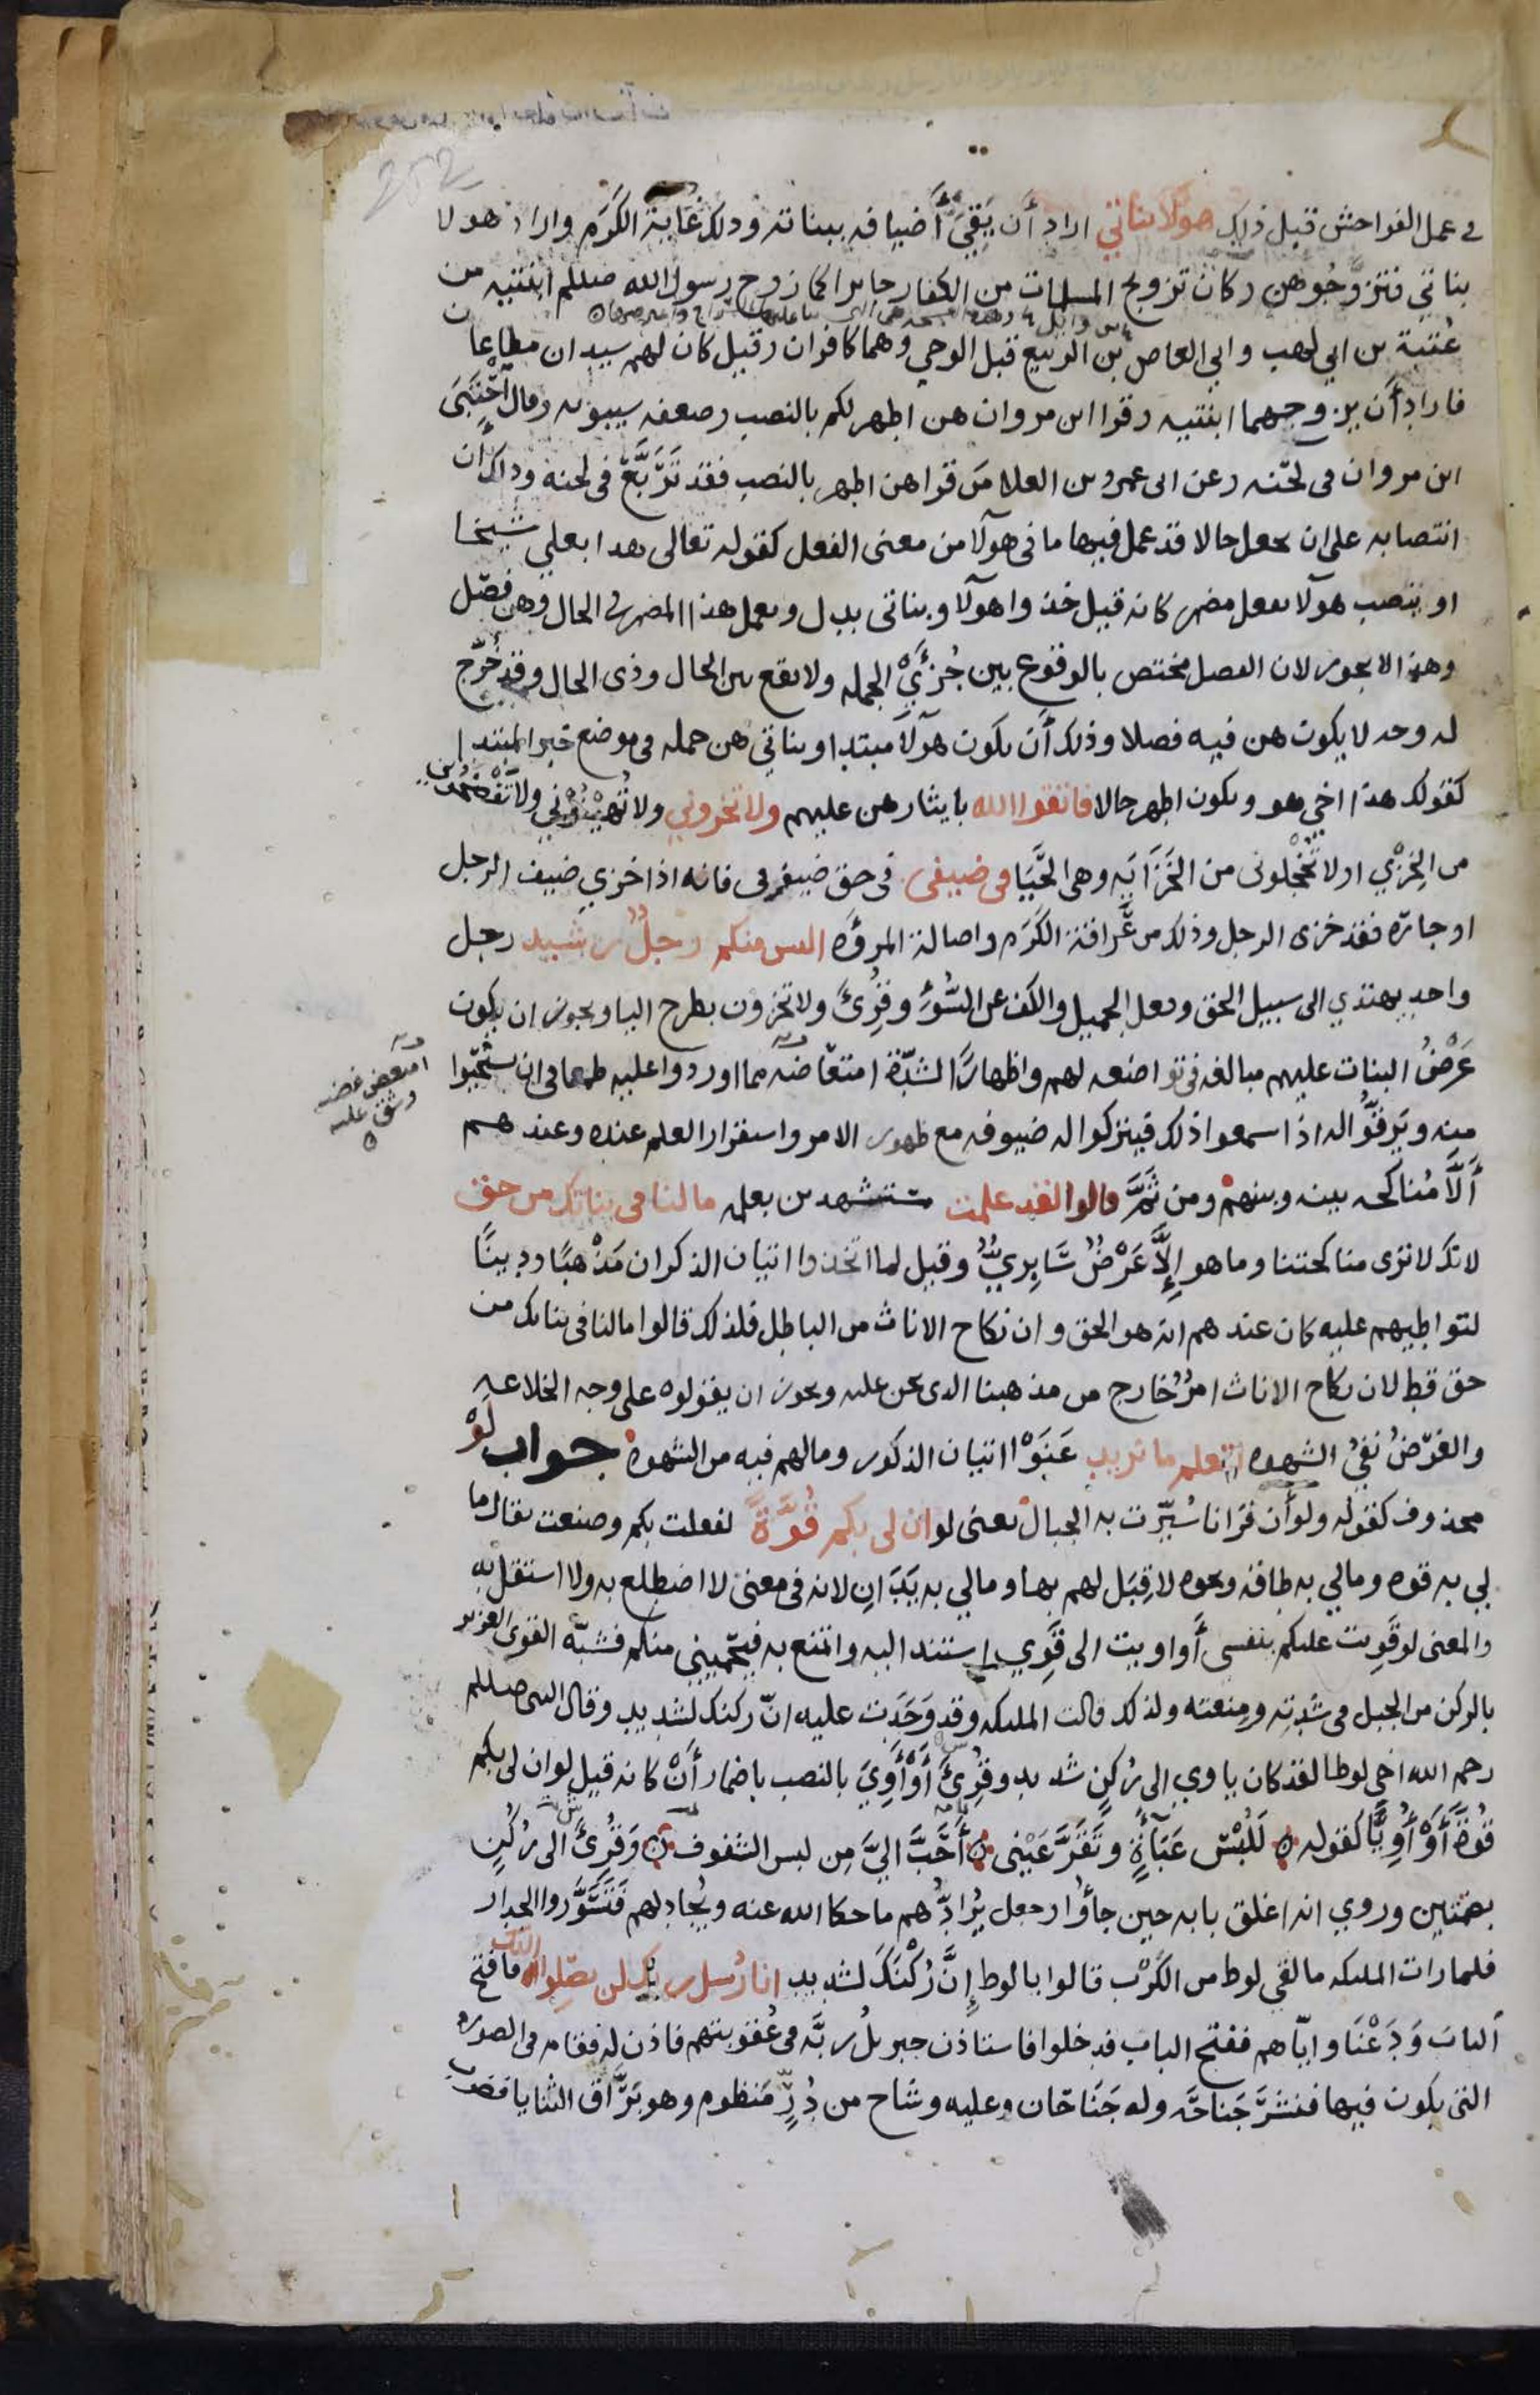 في عمل الفواحش قبل ذلك هولا بناتي اراد أن يَقِيَ أضيافه ببناته وذلك غاية الكَرَم واراد هولا
بناتي فتزوّجُوهن وكان تزويج المسلمات من الكفار جايزا كما زوج رسول الله صللم ابنتيه من
عُتبة بن ابي لهب وابي العاص بن الربيع قبل الوحي وهما كافران وقيل كان لهم سيدان مطاعان
فاراد أن يزوجهما ابنتيه وقرا ابن مروان هن اطهر لكم بالنصب وضعفه سيبويه وقال احْتَبَى
ابن مروان في لحنه وعن ابي عمرو بن العلا مَن قرا هن اطهر بالنصب فقد تَرَبَّعَ في لحنه وذاك أن
انتصابه على ان يجعل حالا قد عمل فيها ما في هولآ من معنى الفعل كقوله تعالى هذا بعلي شيخا
او ينصب هولآ بفعل مضمر كانه قيل خذوا هولآ وبناتي بدل ويعمل هذا المضمر في الحال وهن فصل
وهذا لا يجوز لان الفصل مختص بالوقوع بين جُزْئَيِ الجمله ولا يقع بين الحال وذي الحال وقد خُرّج
له وجه لا يكون هن فيه فصلا وذلك أن يكون هولآ مبتدا وبناتي هن جمله في موضع خبر المبتدا
كقولك هذا اخي هو ويكون اطهر حالا فاتقوا الله بايثارهن عليهم ولا تخزوني ولا تُهينُوني ولا تفضحُوني
من الخِزْي او لا تُخْجِلوني من الخَزَايَه وهي الحَيَا في ضيفي في حق ضيوفي فانه اذا خزي ضيف الرجل
او جاره فقد خزى الرجل وذلك من عَرافة الكَرَم واصالة المروّه اليس منكم رجلٌ رشيد رجل
واحد يهتدي الى سبيل الحق وفعل الجميل والكف عن السُّوء وقُرِئَ ولا تخزون بطرح اليا ويجوز ان يكون
عَرْضُ البنات عليهم مبالغه في تواضعه لهم واظهارًا لشدّة امتعاضه مما اوردوا عليه طمعا في ان يستحيُوا
منه ويَرِقّوا له اذا سمعوا ذلك فيتركوا له ضيوفه مع ظهور الامر واستقرار العلم عنده وعندهم
أَلَّا مُناكحه بينه وبينهم ومن ثَمَّ قالوا لقد علمت مستشهدين بعلمه ما لنا في بناتك من حق
لانك لا ترى مناكحتنا وما هو إلَّا عَرْضٌ سَابِرِيٌّ وقيل لما اتخذوا اتيان الذكران مَذْهبًا ودِينًا
لتواطيهم عليه كان عندهم انه هو الحق وان نكاح الاناث من الباطل فلذلك قالوا ما لنا في بناتك من
حق قط لان نكاح الاناث امرٌ خارج من مذهبنا الذي نحن عليه ويجوز ان يقولوه على وجه الخلاعه
والغرَضُ نفيُ الشهوه لتعلم ما نريد عَنَوْا اتيان الذكور وما لهم فيه من الشهوه جواب لَوْ
محذوف كقوله ولو أن قرانا سُيّرت به الجبال يعنى لو ان لى بكم قُوَّةً لفعلت بكم وصنعت يقال ما
لي به قوه وما لي به طاقه ونحوه لا قِبَل لهم بها وما لي به يَدَانِ لانه في معنى لا اضطلع به ولا استقل به
والمعنى لو قَوِيت عليكم بنفسي أو اويت الى قَوِيّ استند اليه واتمنع به فيَحْمِيني منكم فشبّه القوى العزيز
بالركن من الجبل في شدته ومنعته ولذلك قالت الملىكه وقد وَجَدت عليه انّ ركنك لشديد وقال النبي صللم
رحم الله اخي لوطا لقد كان ياوي الى رُكنٍ شديد وقُرِئَ أَوْ أَوِيَ بالنصب باضمار أَنْ كانه قيل لو ان لي بكم
قُوَّةً أَوْ أُوِيًّا كقوله لَلُبْسُ عَبَآءَةٍ وتَقَرَّ عَيْنى أَحَبُّ اليَّ مِن لبس الشفوف وَقُرِئَ الى رُكُنٍ
بضمّتين وروي انه اغلق بابه حين جاؤُا وجعل يُرَادُّهم ما حكا الله عنه ويُجادلهم فَتَسَوَّروا الجدار
فلما رات الملىكه ما لقي لوط من الكَرْب قالوا يا لوط إنَّ رُكْنَكَ لشديد انا رُسل ربك لن يصلوا اليك فافتح
الباب وَدَعْنَا وايّاهم ففتح الباب فدخلوا فاستاذن جبريلُ ربَّه في عُقوبتهم فاذن له فقام في الصوره
التي يكون فيها فنشَرَ جَناحَه وله جَنَاحان وعليه وشاح من دُرٍّ مَنظوم وهو بَرَّاق الثنايا فضرب
امتعض غضب
وشق عليه